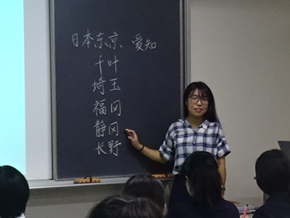 日本东京 爱知
千叶
埼玉
福冈
静冈
长野